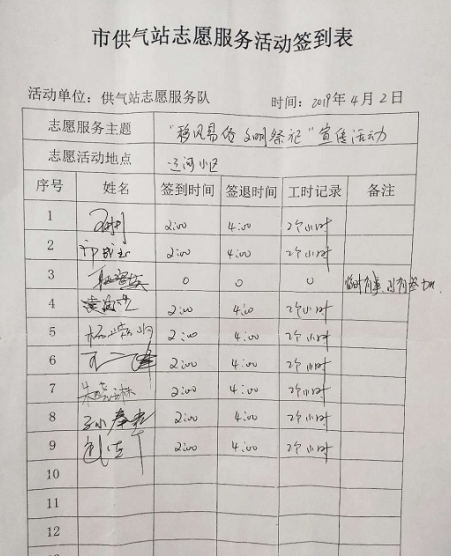 市供气站志愿服务活动签到表
活动单位：供气站志愿服务队 时间：2019年4月2日
志愿服务主题 “移风易俗 文明祭祀”宣传活动
志愿活动地点 运河小区
序号 姓名 签到时间 签退时间 工时记录 备注
1 2:00 4:00 2个小时
2 2:00 4:00 2个小时
3 0 0 0 临时有事,没有参加.
4 2:00 4:00 2个小时
5 2:00 4:00 2个小时
6 2:00 4:00 2个小时
7 2:00 4:00 2个小时
8 2:00 4:00 2个小时
9 2:00 4:00 2个小时
10
11
12